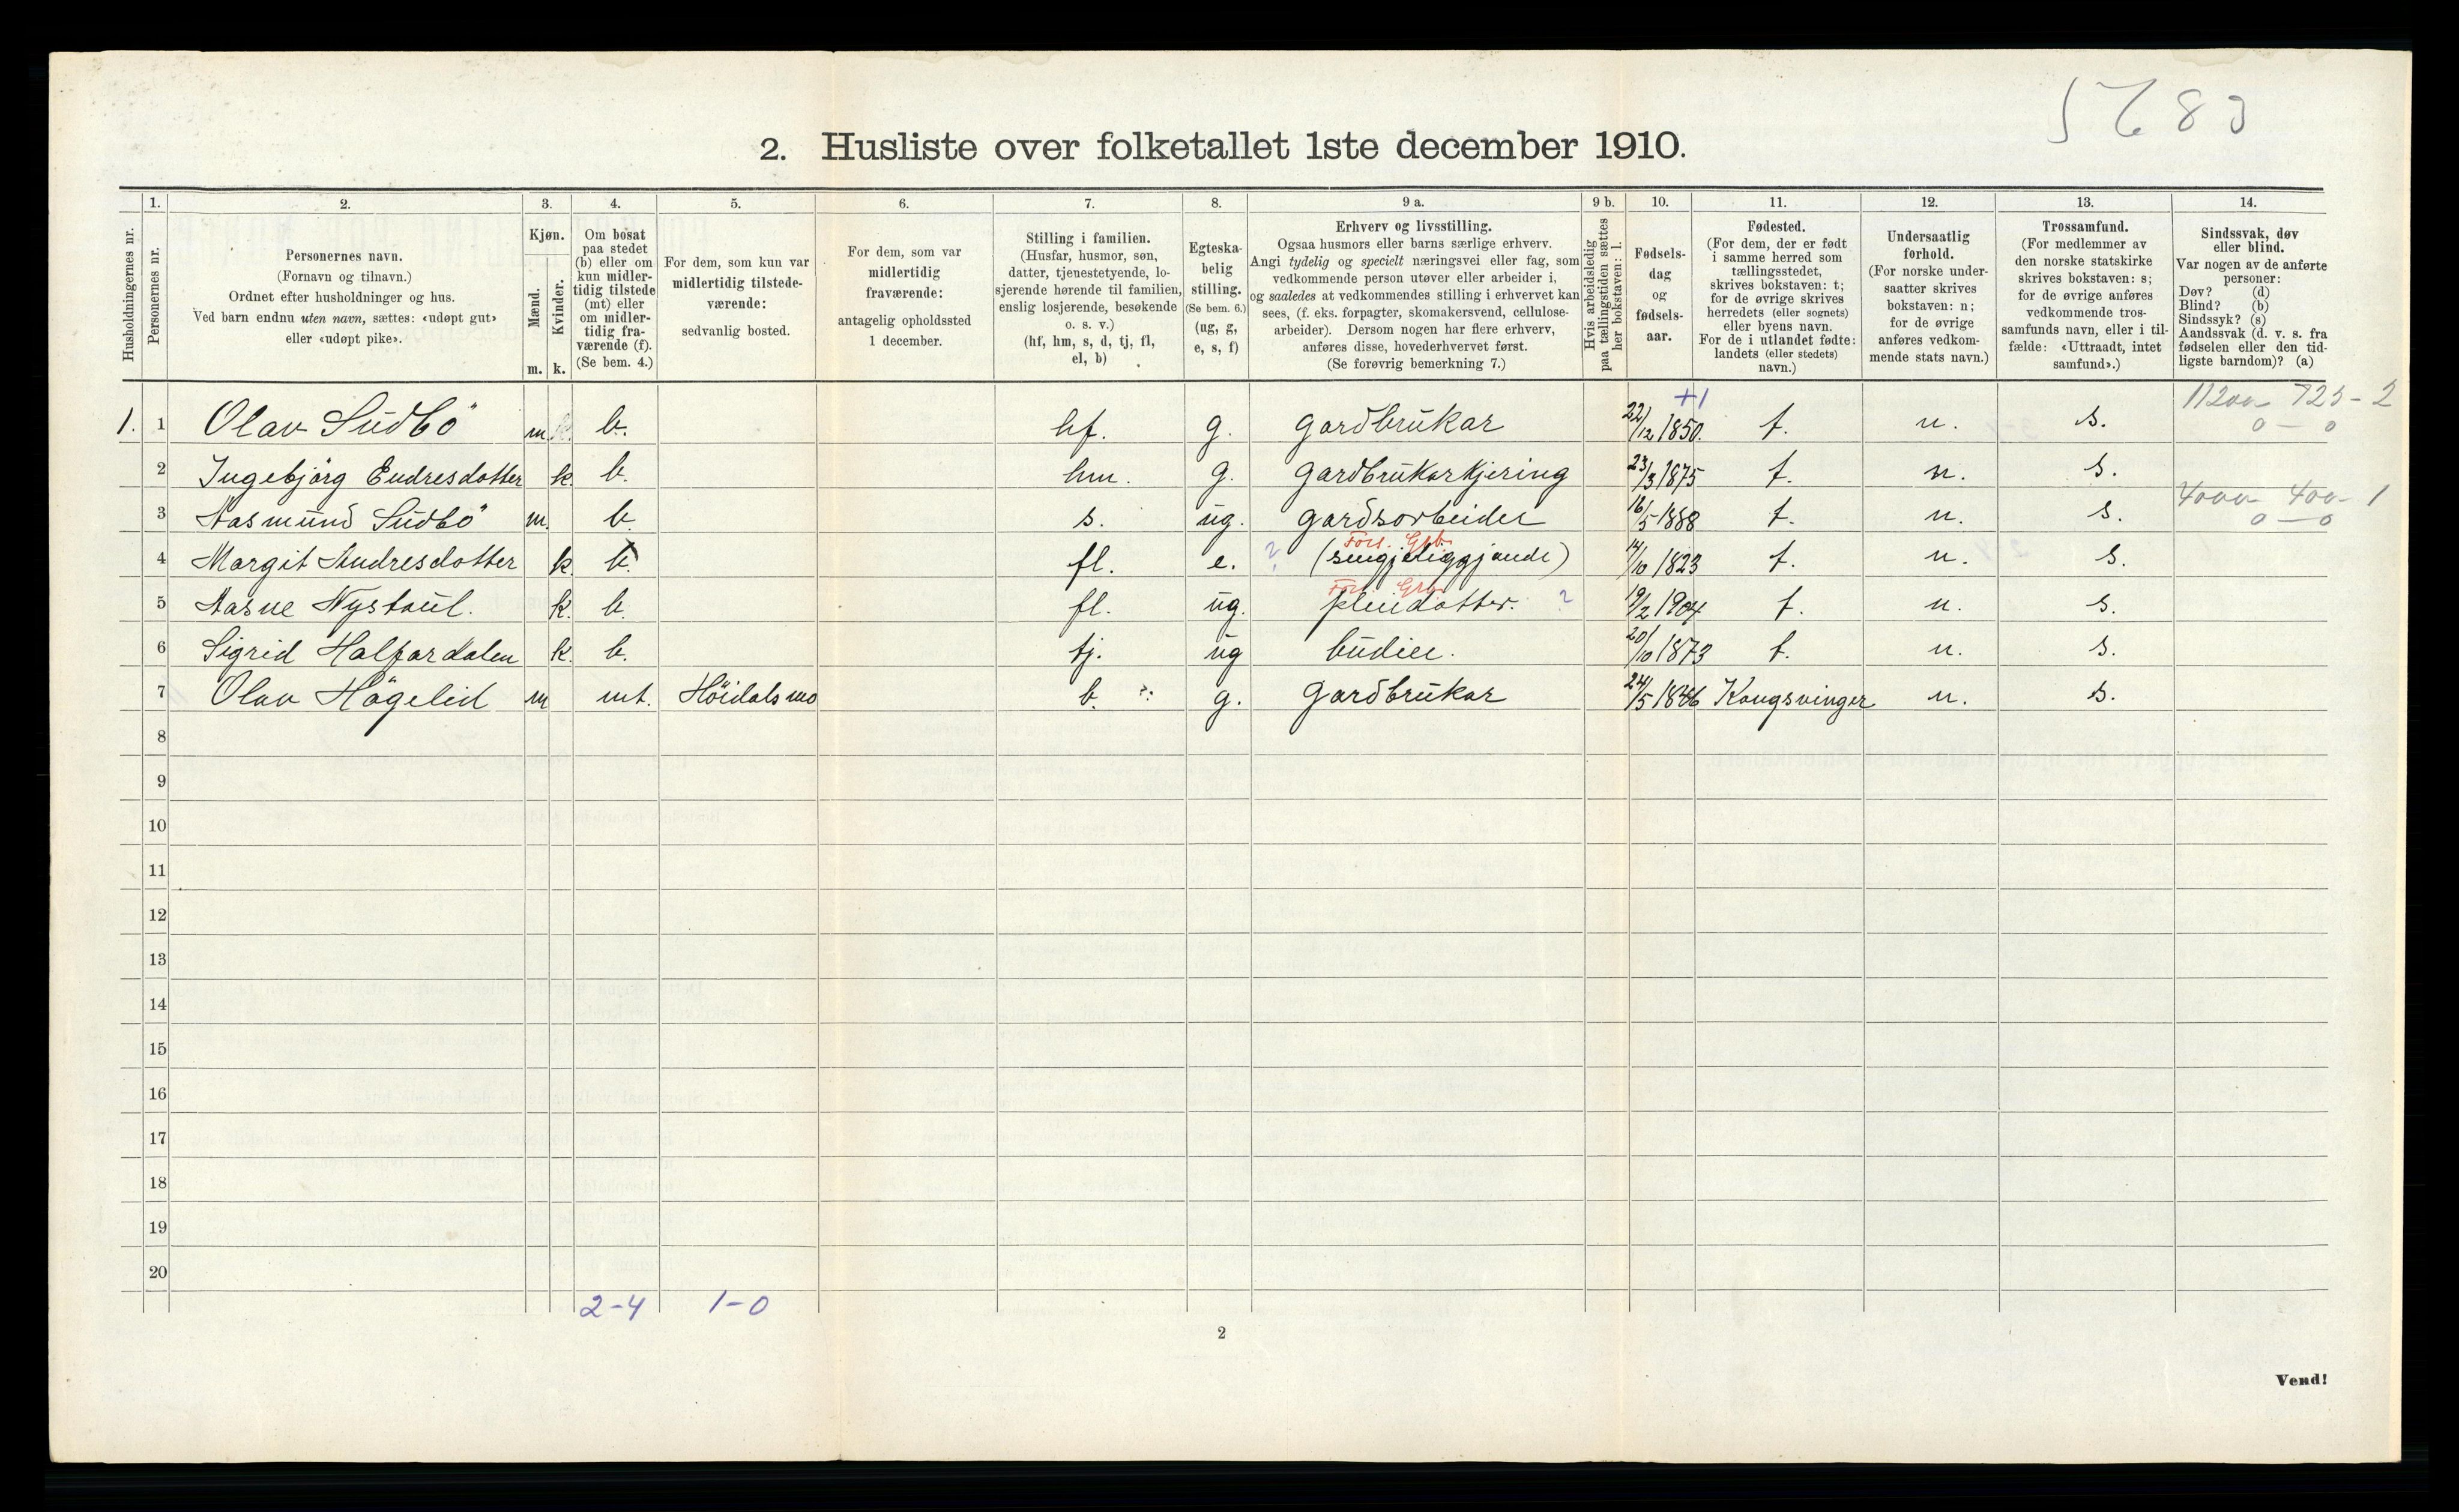 5683
2. Husliste over folketallet 1ste december 1910.
Husholdningernes nr.
1.
Personernes nr.
2.
Personernes navn.
(Fornavn og tilnavn.)
Ordnet efter husholdninger og hus.
Ved barn endnu uten navn, sættes: «udøpt gut»
eller «udøpt pike».
3.
Kjøn.
Mænd.
Kvinder.
m. k.
4.
Om bosat
paa stedet
(b) eller om
kun midler-
tidig tilstede
(mt) eller
om midler-
tidig fra-
værende (f).
(Se bem. 4.)
5.
For dem, som kun var
midlertidig tilstede-
værende:
sedvanlig bosted.
6.
For dem, som var
midlertidig
fraværende:
antagelig opholdssted
1 december.
7.
Stilling i familien.
(Husfar, husmor, søn,
datter, tjenestetyende, lo-
sjerende hørende til familien,
enslig losjerende, besøkende
o. s. v.)
(hf, hm, s, d, tj, fl,
el, b)
8.
Egteska-
belig
stilling.
(Se bem. 6.)
(ug, g,
e, s, f)
9 a.
Erhverv og livsstilling.
Ogsaa husmors eller barns særlige erhverv.
Angi tydelig og specielt næringsvei eller fag, som
vedkommende person utøver eller arbeider i,
og saaledes at vedkommendes stilling i erhvervet kan
sees, (f. eks. forpagter, skomakersvend, cellulose-
arbeider). Dersom nogen har flere erhverv,
anføres disse, hovederhvervet først.
(Se forøvrig bemerkning 7.)
9 b.
Hvis arbeidsledig
paa tællingstiden sættes
her bokstaven: l.
10.
Fødsels-
dag
og
fødsels-
aar.
11.
Fødested.
(For dem, der er født
i samme herred som
tællingsstedet,
skrives bokstaven: t;
for de øvrige skrives
herredets (eller sognets)
eller byens navn.
For de i utlandet fødte:
landets (eller stedets)
navn.)
12.
Undersaatlig
forhold.
(For norske under-
saatter skrives
bokstaven: n;
for de øvrige
anføres vedkom-
mende stats navn.)
13.
Trossamfund.
(For medlemmer av
den norske statskirke
skrives bokstaven: s;
for de øvrige anføres
vedkommende tros-
samfunds navn, eller i til-
fælde: «Uttraadt, intet
samfund».)
14.
Sindssvak, døv
eller blind.
Var nogen av de anførte
personer:
Døv? (d)
Blind? (b)
Sindssyk? (s)
Aandssvak (d. v. s. fra
fødselen eller den tid-
ligste barndom)? (a)
+1
11200 725-2
1. 1 Olav Südbö m b. hf. g. gardbrükar 22/12 1850. t. n. s. 0 — 0
2 Ingebjörg Eudresdotter k. b. hm. g. gardbrükarkjering 23/3 1875 t. n. s.
4000 400-1
3 Aasmünd Südbö m. b. s. üg. gardsarbeider 16/5 1888 t. n. s. 0 — 0
Fors. Grb.
4 Margit Andresdotter k. b. fl. e. ? (sengjeliggjande) 14/10 1823 t. n. s.
Fors. Grb.
5 Aasne Nystaül. k. b. fl. üg. pleiedotter. ? 19/2 1904 t. n. s.
6 Sigrid Halfardalen k. b. tj. üg büdiee. 20/10 1873 t. n. s.
7 Olav Högelid m mt. Höidalsmo b. ?: g. gardbrükar 24/5 1846 Kongsvinger n. s.
8
9
10
11
12
13
14
15
16
17
18
19
20
2-4 1-0
2
Vend!